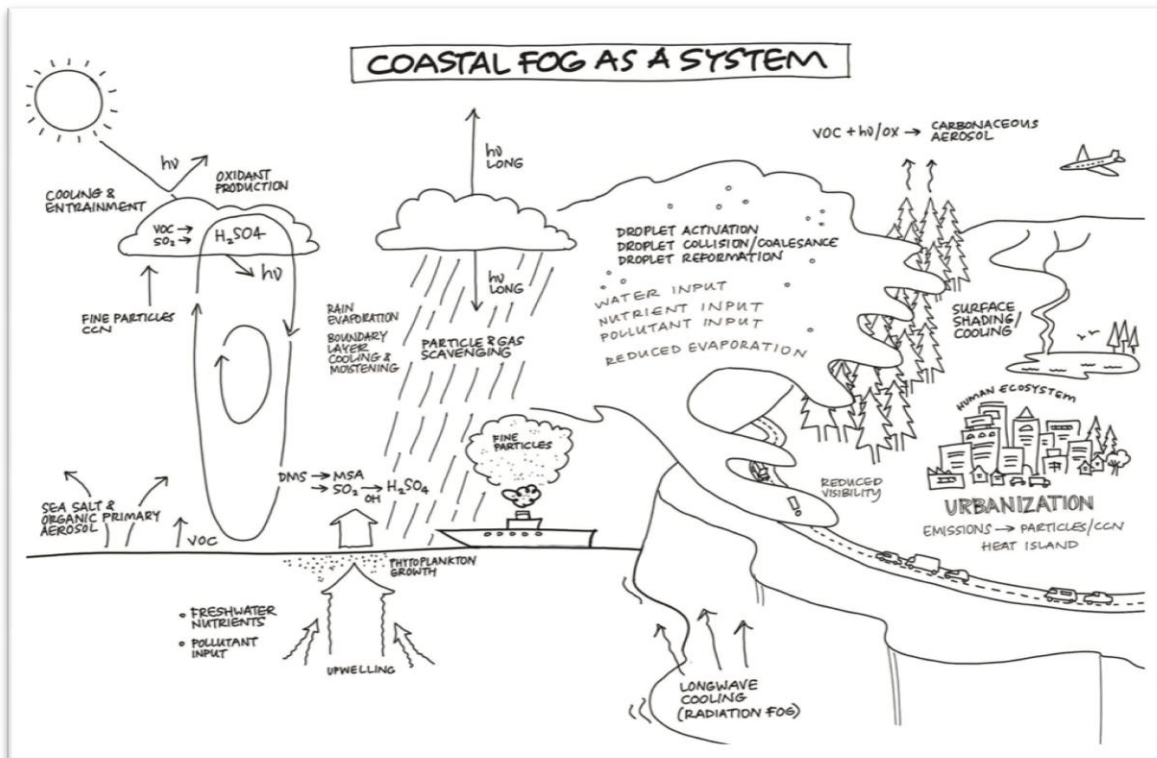 COASTAL FOG AS A SYSTEM
hν
OXIDANT
PRODUCTION
COOLING &
ENTRAINMENT
VOC →
SO₂ →
H₂SO4
hν
FINE PARTICLES
CCN
hν
LONG
hν
LONG
RAIN
EVAPORATION
BOUNDARY
LAYER
COOLING &
MOISTENING
PARTICLE & GAS
SCAVENGING
FINE
PARTICLES
DMS → MSA
→ SO₂ → H₂SO₄
OH
SEA SALT &
ORGANIC PRIMARY
AEROSOL
VOC
PHYTOPLANKTON
GROWTH
• FRESHWATER
NUTRIENTS
• POLLUTANT
INPUT
UPWELLING
VOC + hν/OX → CARBONACEOUS
AEROSOL
DROPLET ACTIVATION
DROPLET COLLISION/COALESANCE
DROPLET REFORMATION
WATER INPUT
NUTRIENT INPUT
POLLUTANT INPUT
REDUCED EVAPORATION
SURFACE
SHADING/
COOLING
HUMAN ECOSYSTEM
REDUCED
VISIBILITY
!
URBANIZATION
EMISSIONS → PARTICLES/CCN
HEAT ISLAND
LONGWAVE
COOLING
(RADIATION FOG)